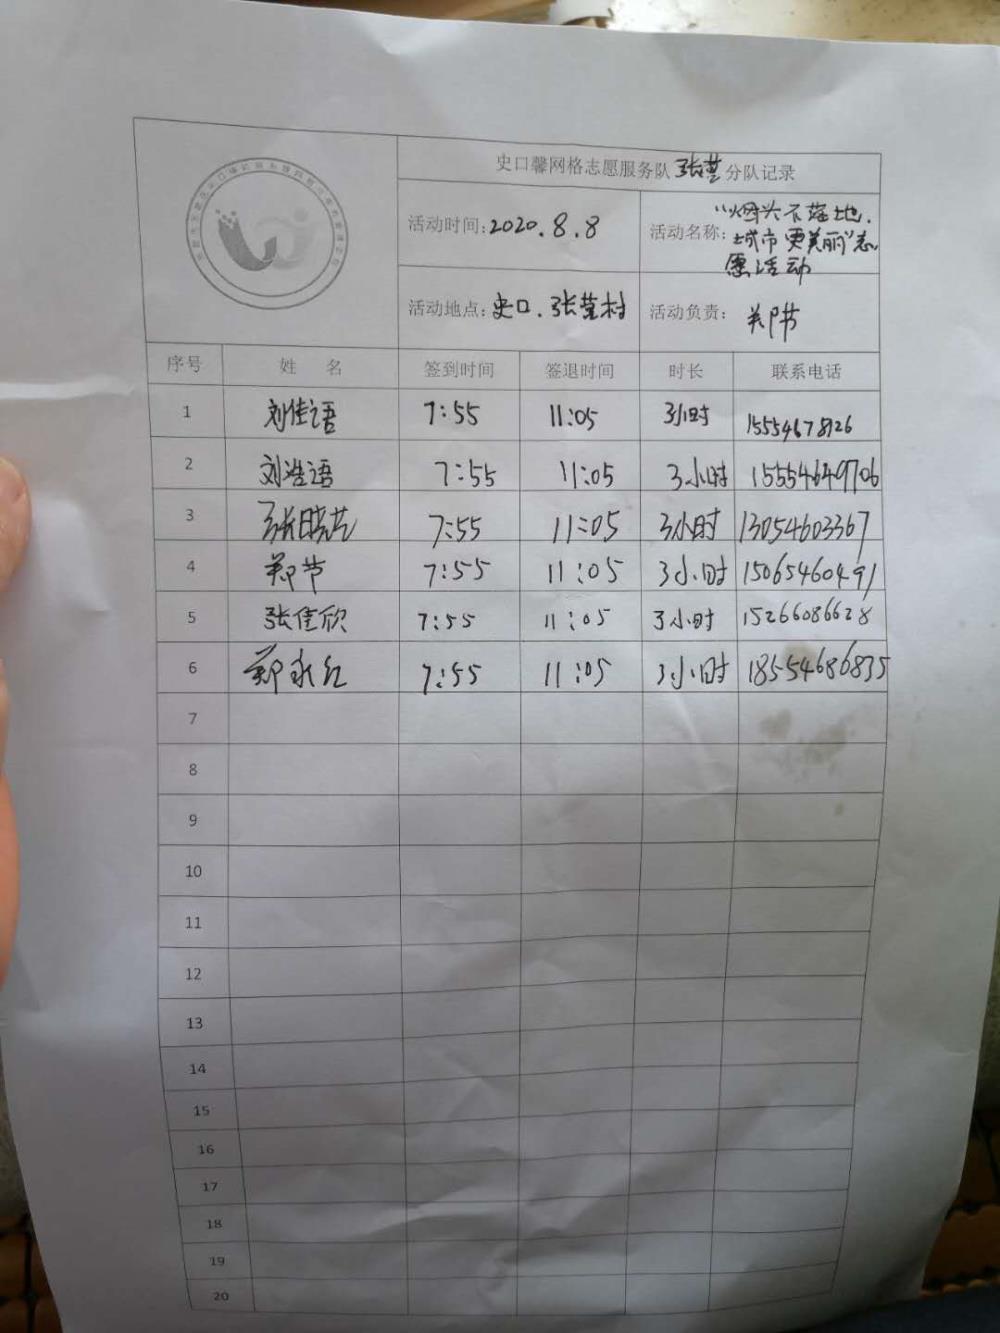 史口馨网格志愿服务队张营分队记录
活动时间:2020.8.8
活动名称:"烟头不落地.
城市更美丽"志
愿活动
活动地点:史口.张营村
活动负责:郑节
序号 姓 名 签到时间 签退时间 时长 联系电话
1 刘佳语 7:55 11:05 3小时 15554678926
2 刘浩语 7:55 11:05 3小时 15554649706
3 张晓艺 7:55 11:05 3小时 13054603367
4 郑节 7:55 11:05 3小时 15065460491
5 张佳欣 7:55 11:05 3小时 15266086628
6 郑永红 7:55 11:05 3小时 18554686835
7
8
9
10
11
12
13
14
15
16
17
18
19
20